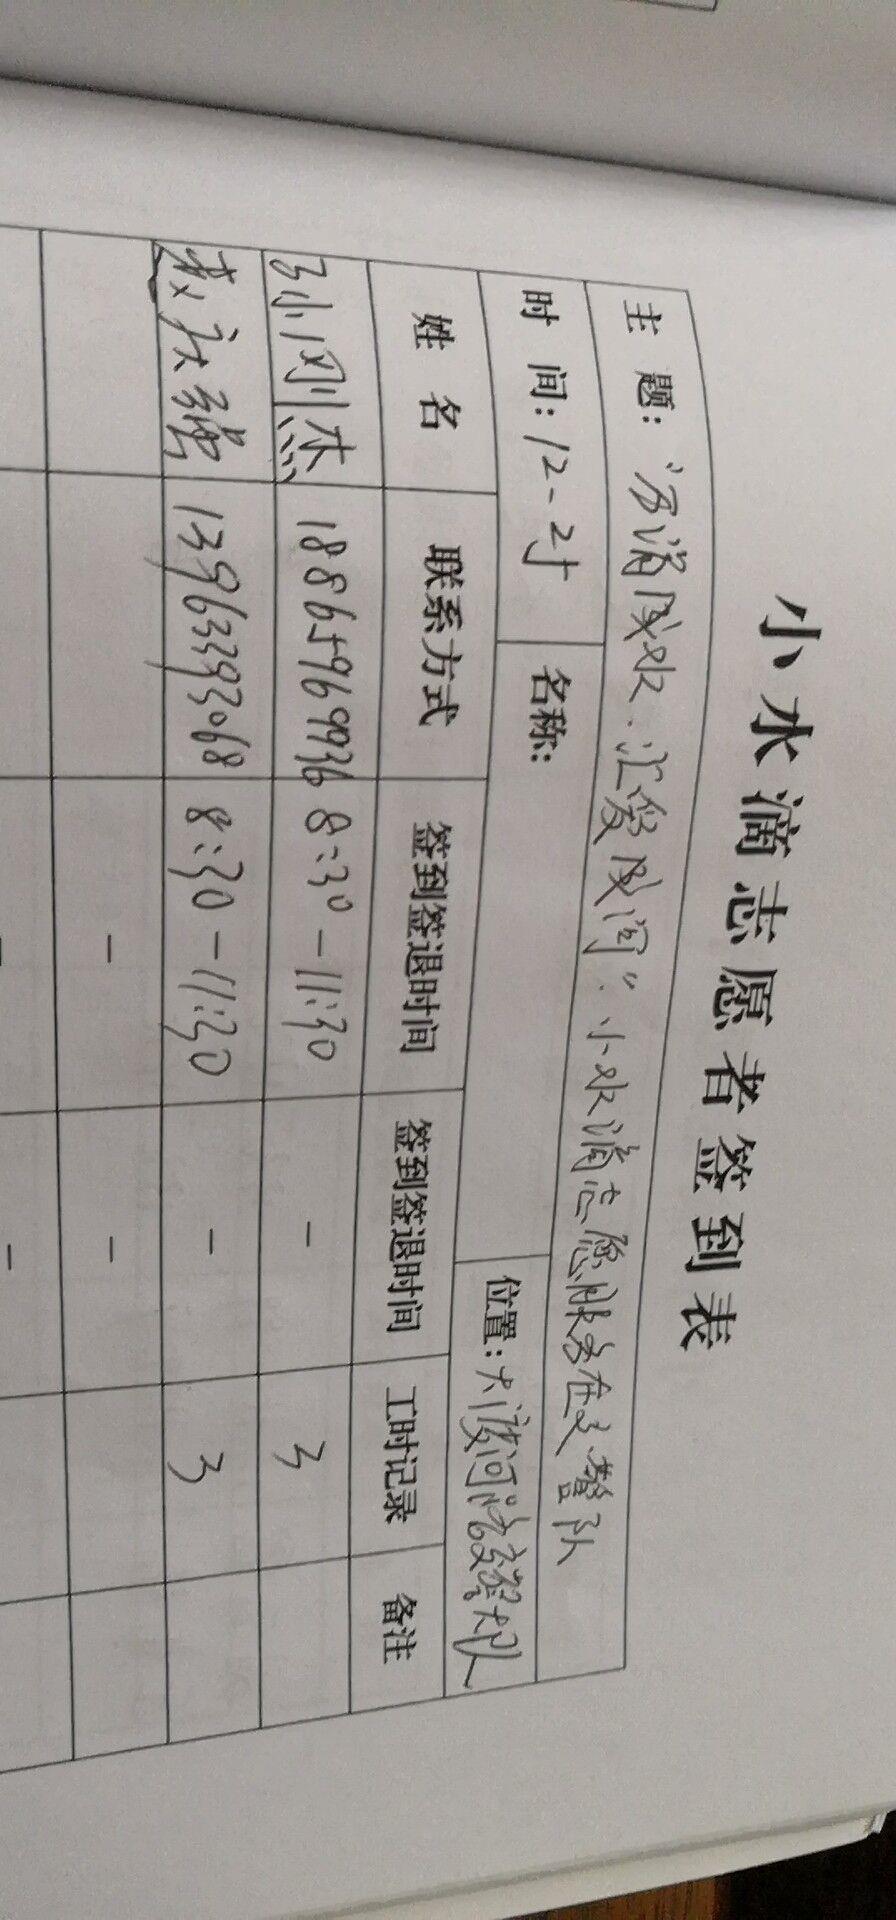 小水滴志愿者签到表
主 题： 小水滴志愿服务在交警队
时 间：12-25 名称： 位置：大渡河路交警大队
姓 名 联系方式 签到签退时间 签到签退时间 工时记录 备注
孙刚杰 18865969936 8:30-11:30 - 3
13963393068 8:30-11:30 - 3
- -
- -